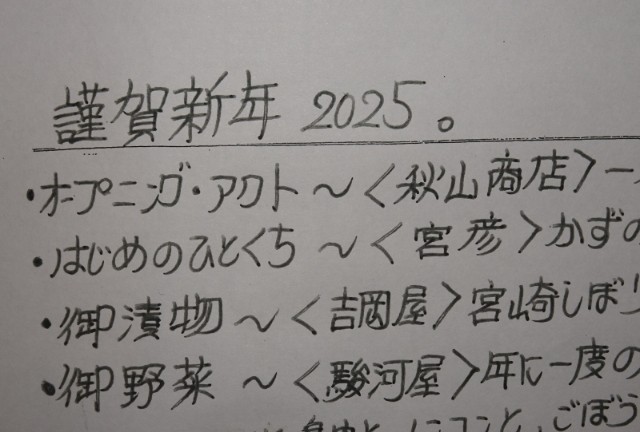 謹賀新年 2025。
・オープニング・アクト～〈秋山商店〉一
・はじめのひとくち～〈宮彦〉かずの
・御漬物～〈吉岡屋〉宮崎しぼり
・御野菜～〈駿河屋〉年に一度の
ごぼう